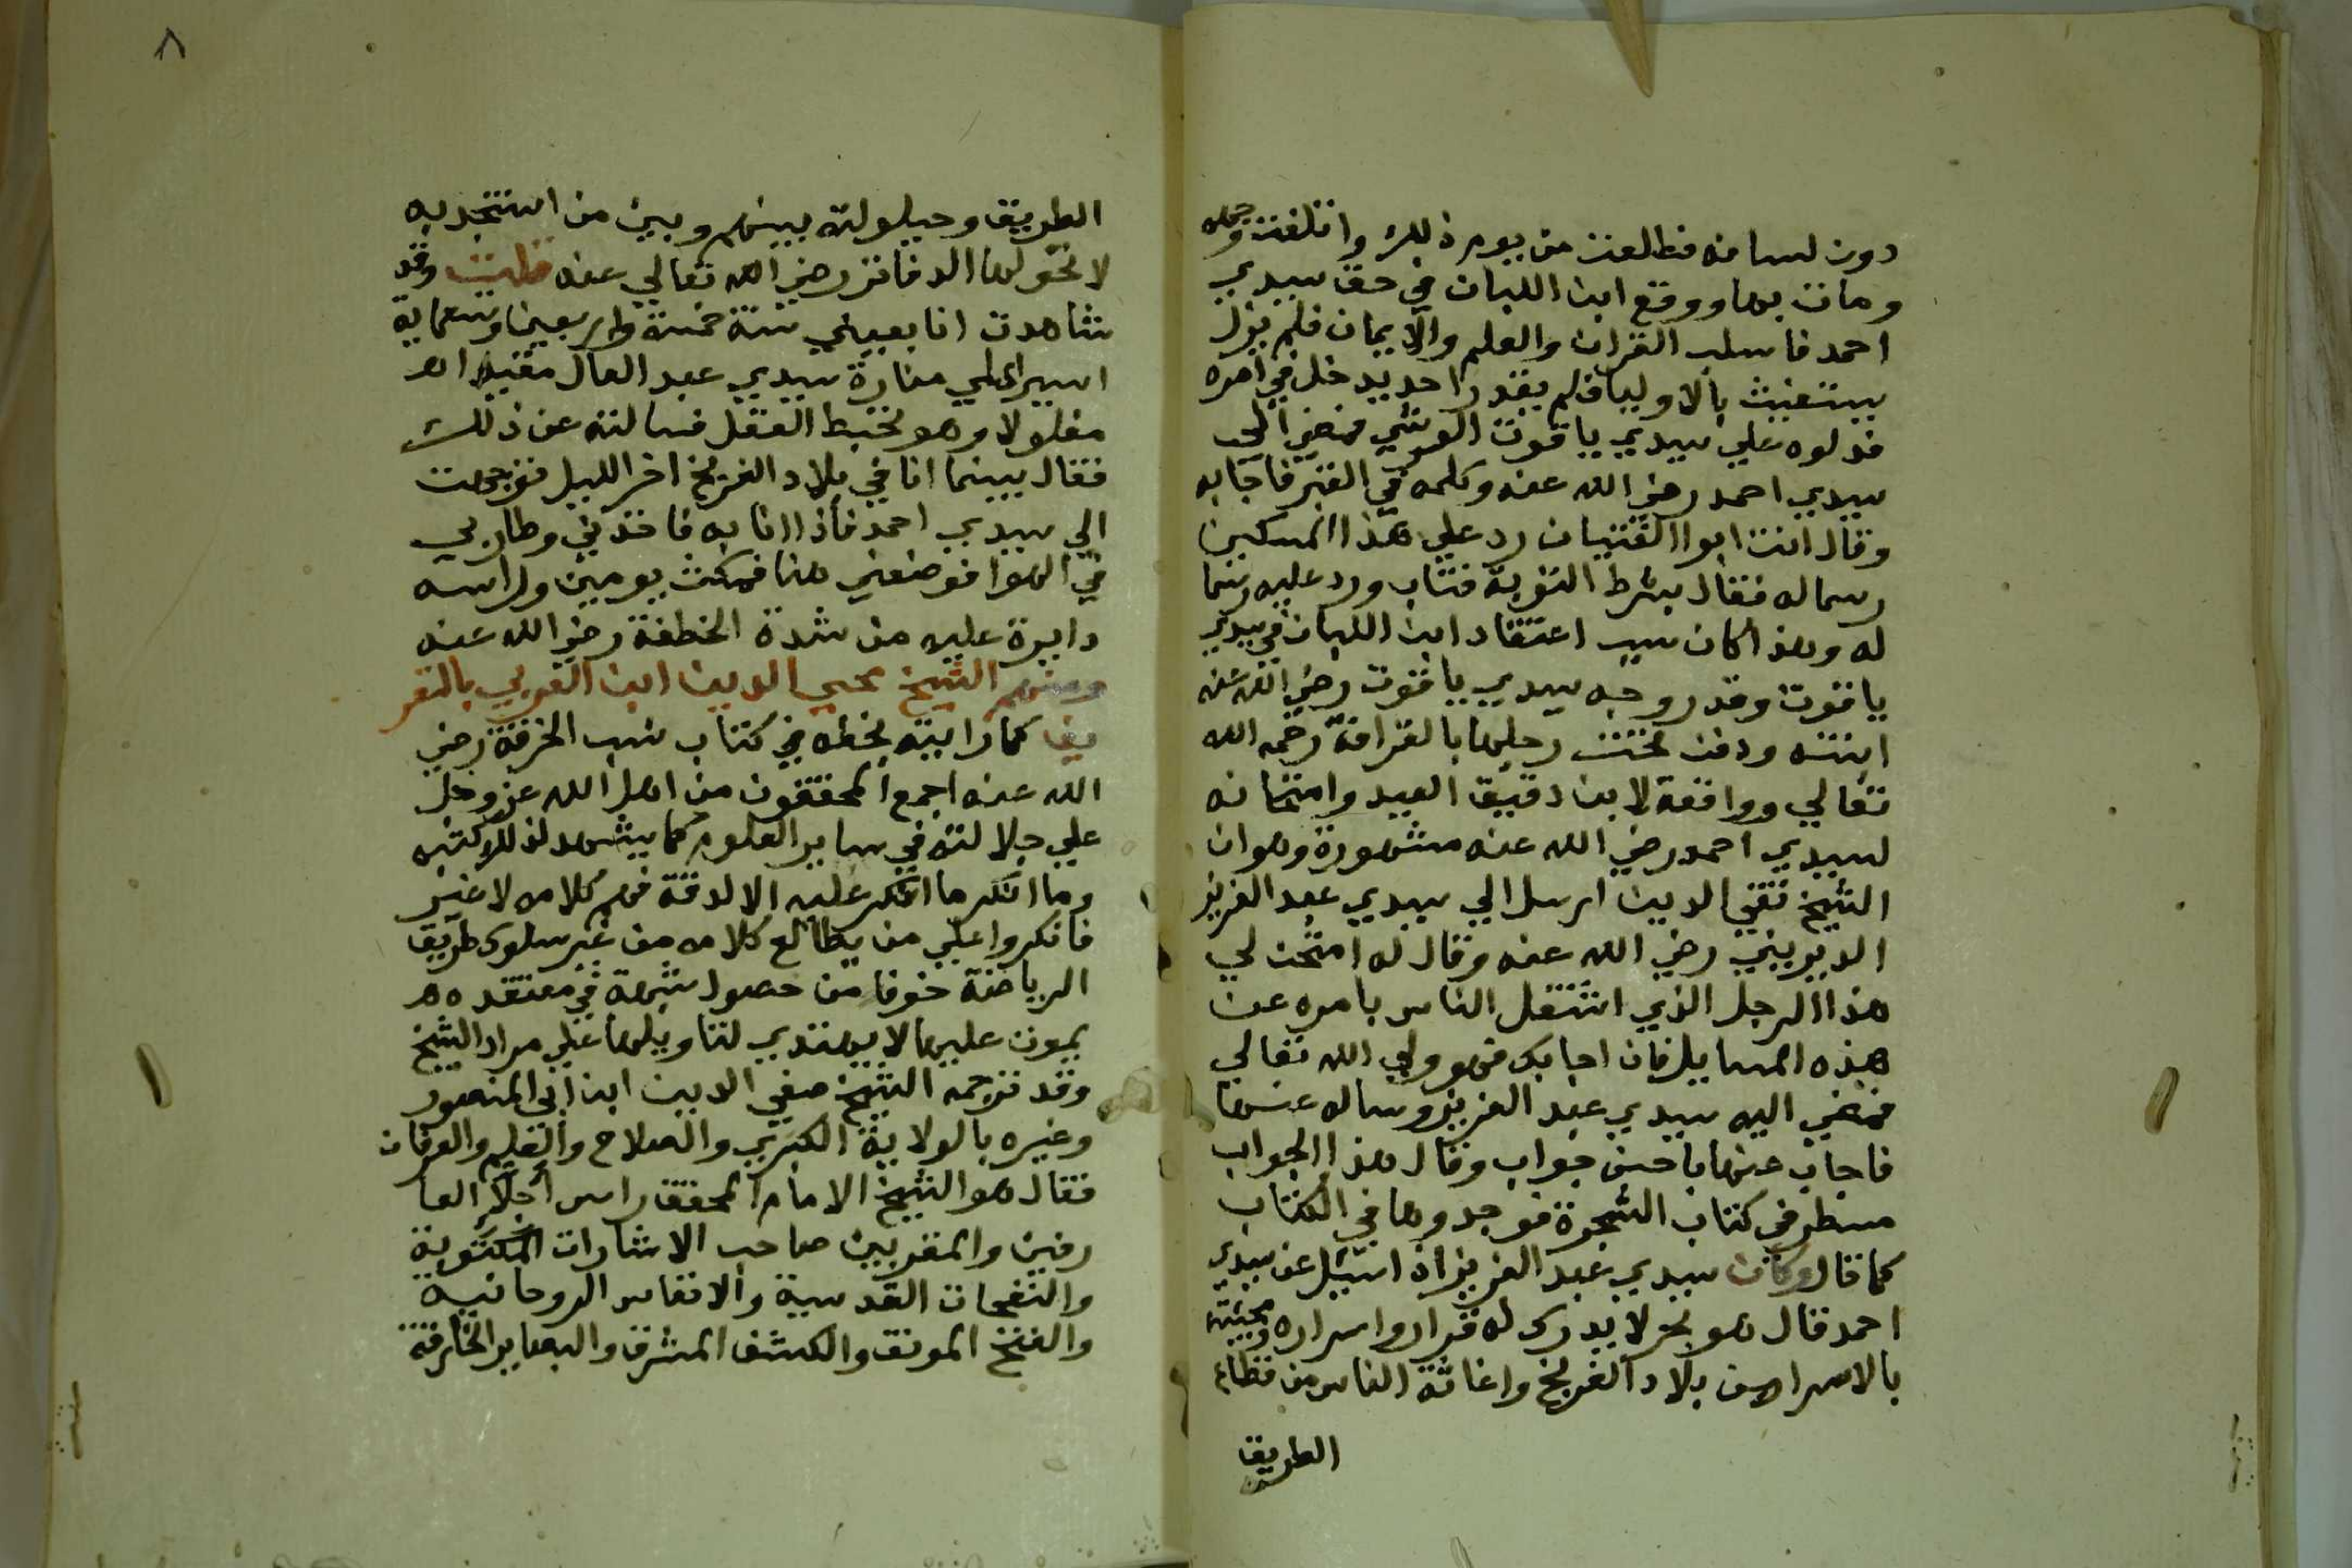 دون لسانه فطلعت من يوم ذلك واتلفت وجهه
ومات بها ووقع ابن اللبان في حق سيدي
احمد فاسلب القران والعلم والايمان فلم يزل
يستغيث بالاوليا فلم يقدر احد يدخل في امره
فدلوه علي سيدي ياقوت العرشي فمضي الي
سيدي احمد رضي الله عنه وكلمه في القبر فاجابه
وقال انت ابوا الفتيان رد علي هذا المسكين
رسماله فقال بشرط التوبة فتاب ورد عليه رسما
له وهذا كان سبب اعتقاد ابن اللبان في سيدي
ياقوت وقد زوجه سيدي ياقوت رضي الله عنه
ابنته ودفن تحت رجليها بالقرافة رحمه الله
تعالي وواقعة لابن دقيق العيد وامتحانه
لسيدي احمد رضي الله عنه مشهورة وهوان
الشيخ تقي الدين ارسل الي سيدي عبد العزيز
الديريني رضي الله عنه وقال له امتحن لي
هذا الرجل الذي اشتغل الناس بامره عن
هذه المسايل فان اجابك فهو ولي الله تعالي
فمضي اليه سيدي عبد العزيز وساله عنها
فاجاب عنها باحسن جواب وقال هذا الجواب
مسطر في كتاب الشجرة فوجدوها في الكتاب
كما قال وكان سيدي عبد العزيز اذا سيل عن سيدي
احمد قال هو بحر لا يدرك له قرار واسراره ومجيئه
بالاسرا من بلاد الفرنج واغاثة الناس من قطاع
الطريق
٨
الطريق وحيلولته بينهم وبين من استنجد به
لا تحويها الدفاتر رضي الله تعالي عنه قلت وقد
شاهدت انا بعيني سنة خمسة واربعين وتسعماية
اسيرا علي منارة سيدي عبد العال مقيدا
مغلولا وهو مخبط العقل فسالته عن ذلك
فقال بينما انا في بلاد الفرنج اخر الليل توجهت
الي سيدي احمد فاذا انا به فاخذني وطار بي
في الهوا فوضعني هنا فمكث يومين وراسه
دايرة عليه من شدة الخطفة رضي الله عنه
ومنهم الشيخ محيي الدين ابن العربي بالتعر
يف كما رايته بخطه في كتاب نسب الخرقة رضي
الله عنه اجمع المحققون من اهل الله عز وجل
علي جلالته في ساير العلوم كما يشهد لذلك كتبه
وما انكر ما انكر عليه الا لدقة فهم كلامه لا غير
فانكروا علي من يطالع كلامه من غير سلوك طريق
الرياضة خوفا من حصول شبهة في معتقده
يموت عليها لا يهتدي لتاويلها علي مراد الشيخ
وقد ترجمه الشيخ صفي الدين ابن ابي المنصور
وغيره بالولاية الكبري والصلاح والعلم والعرفان
فقال هو الشيخ الامام المحقق راس اجلا العا
رفين والمقربين صاحب الاشارات الملكوتية
والنفحات القدسية والانفاس الروحانية
والفتح المونق والكشف المشرق والبصاير الخارقة